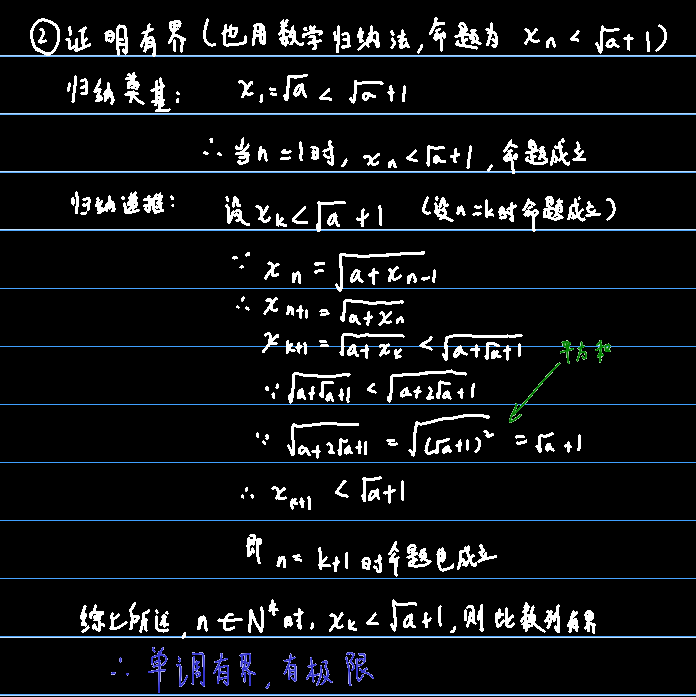 ②证明有界(也用数学归纳法,命题为 xₙ < √a+1)
归纳奠基: x₁=√a < √a+1
∴当n=1时, xₙ<√a+1,命题成立
归纳递推: 设xₖ<√a+1 (设n=k时命题成立)
∵ xₙ = √(a+xₙ₋₁)
∴ xₙ₊₁ = √(a+xₙ)
xₖ₊₁ = √(a+xₖ) < √(a+√a+1)
平方和
∵ √(a+√a+1) < √(a+2√a+1)
∵ √(a+2√a+1) = √((√a+1)²) = √a+1
∴ xₖ₊₁ < √a+1
即 n= k+1时命题也成立
综上所述,n∈N*时, xₖ<√a+1,则此数列有界
∴单调有界,有极限